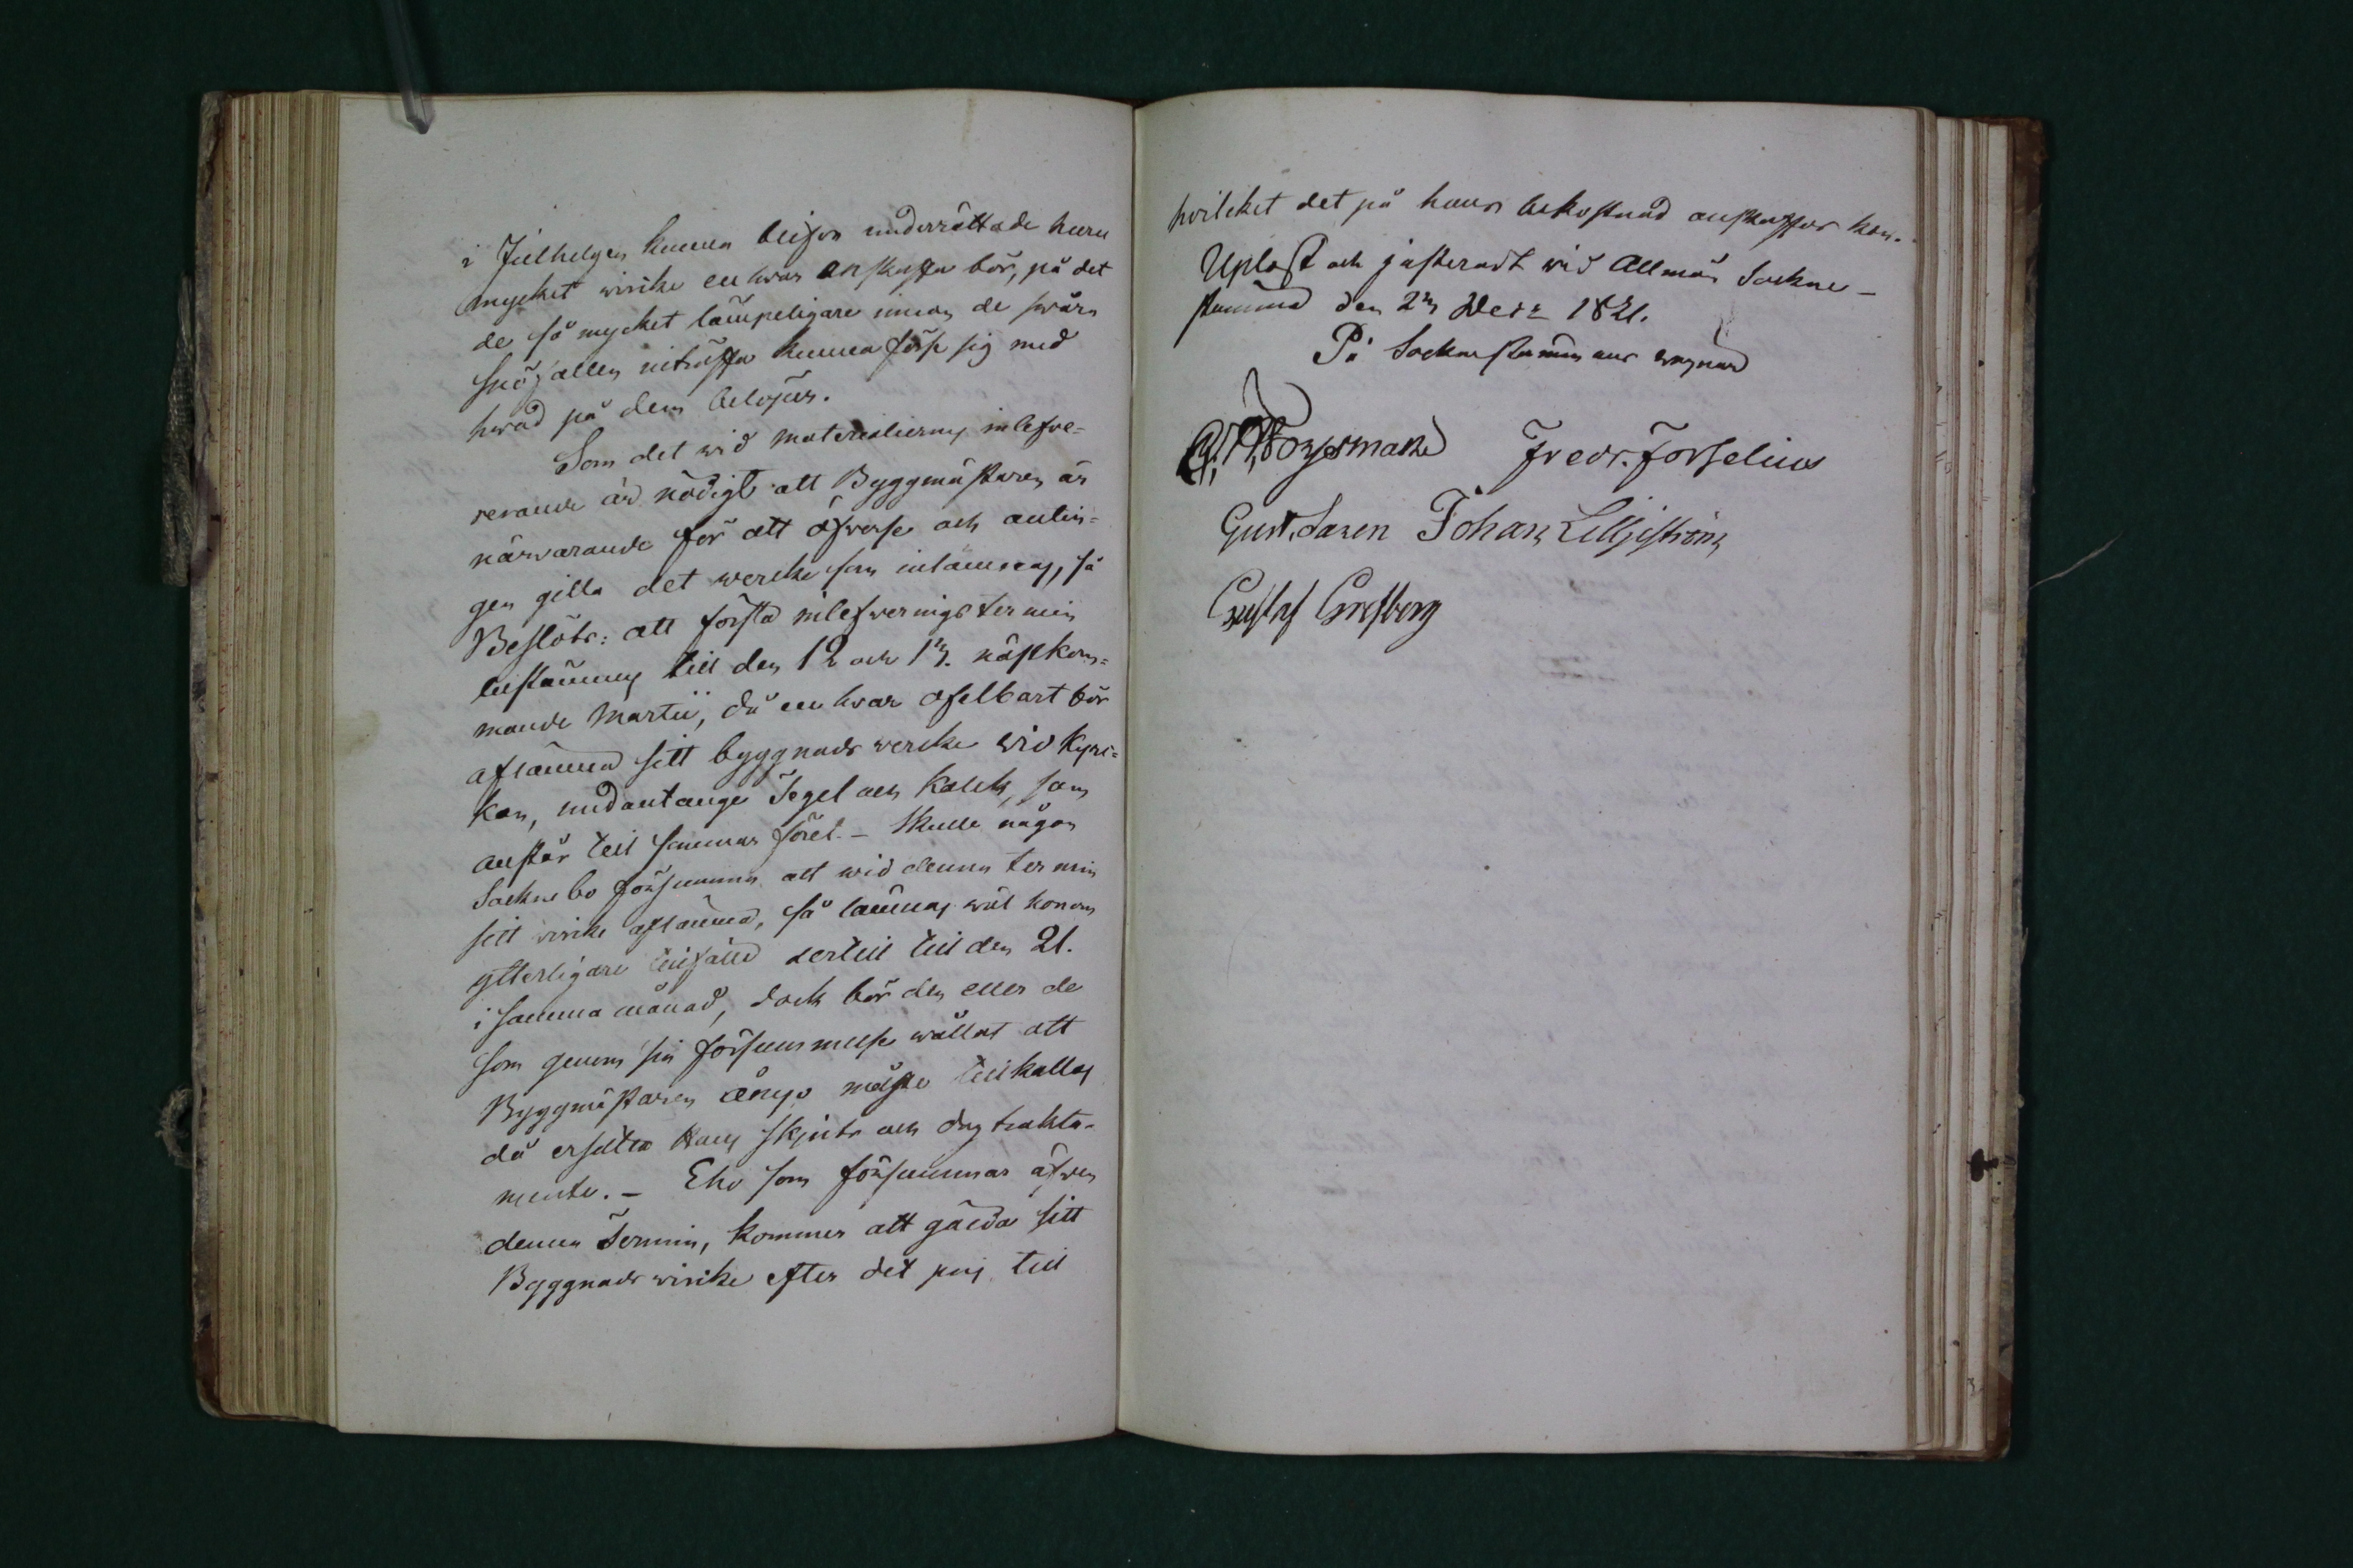 i Julhelgen kunna blifva underrättade huru
mycket virike en hvar anskaffa bör, på det
de så mycket lämpeligare innan de svåra
snöfallen inträffa kunna förse sig med
hvad på dem belöper.
Som det wid materialiernes inlefve-
rerande är nödigt att Byggmästaren är
närvarande för att öfverse och antin-
gen gilla det wercke som inlämnas, så
Beslöts: att första inlefvernings termin
bestämmes till den 12 och 13. nästkom-
mande Martii, då en hvar ofelbart bör
aflämna sitt byggnads wercke wid Kyr-
kan, undantange Tegel och Kalck, som
anstår till sommar föret. – Skulle någon
Sockne bo försumma att wid denna termin
sitt virike aflämna, så lämnas wäl honom
ytterligare tillfälle dertill till den 21.
i samma månad, dock bör den eller de
som genom sin försummelse wållat att
Byggmästaren ånyo måste tillkallas
då ersätta hans skjuts och dagtrakta-
mente. – Eho som försummar äfven
denna Termin, kommer att gälda sitt
Byggnads virike efter det pris till
hvilcket det på hans bekostnad anskaffas kan.
Upläst och justeradt wid Allmän Sockne-
stämma den 23 Decr 1821.
På Sockne stämmans wägnar
Forssman Fredr. Forselius
Gust. Jansson Johan Liljeström
Gustaf Grefberg